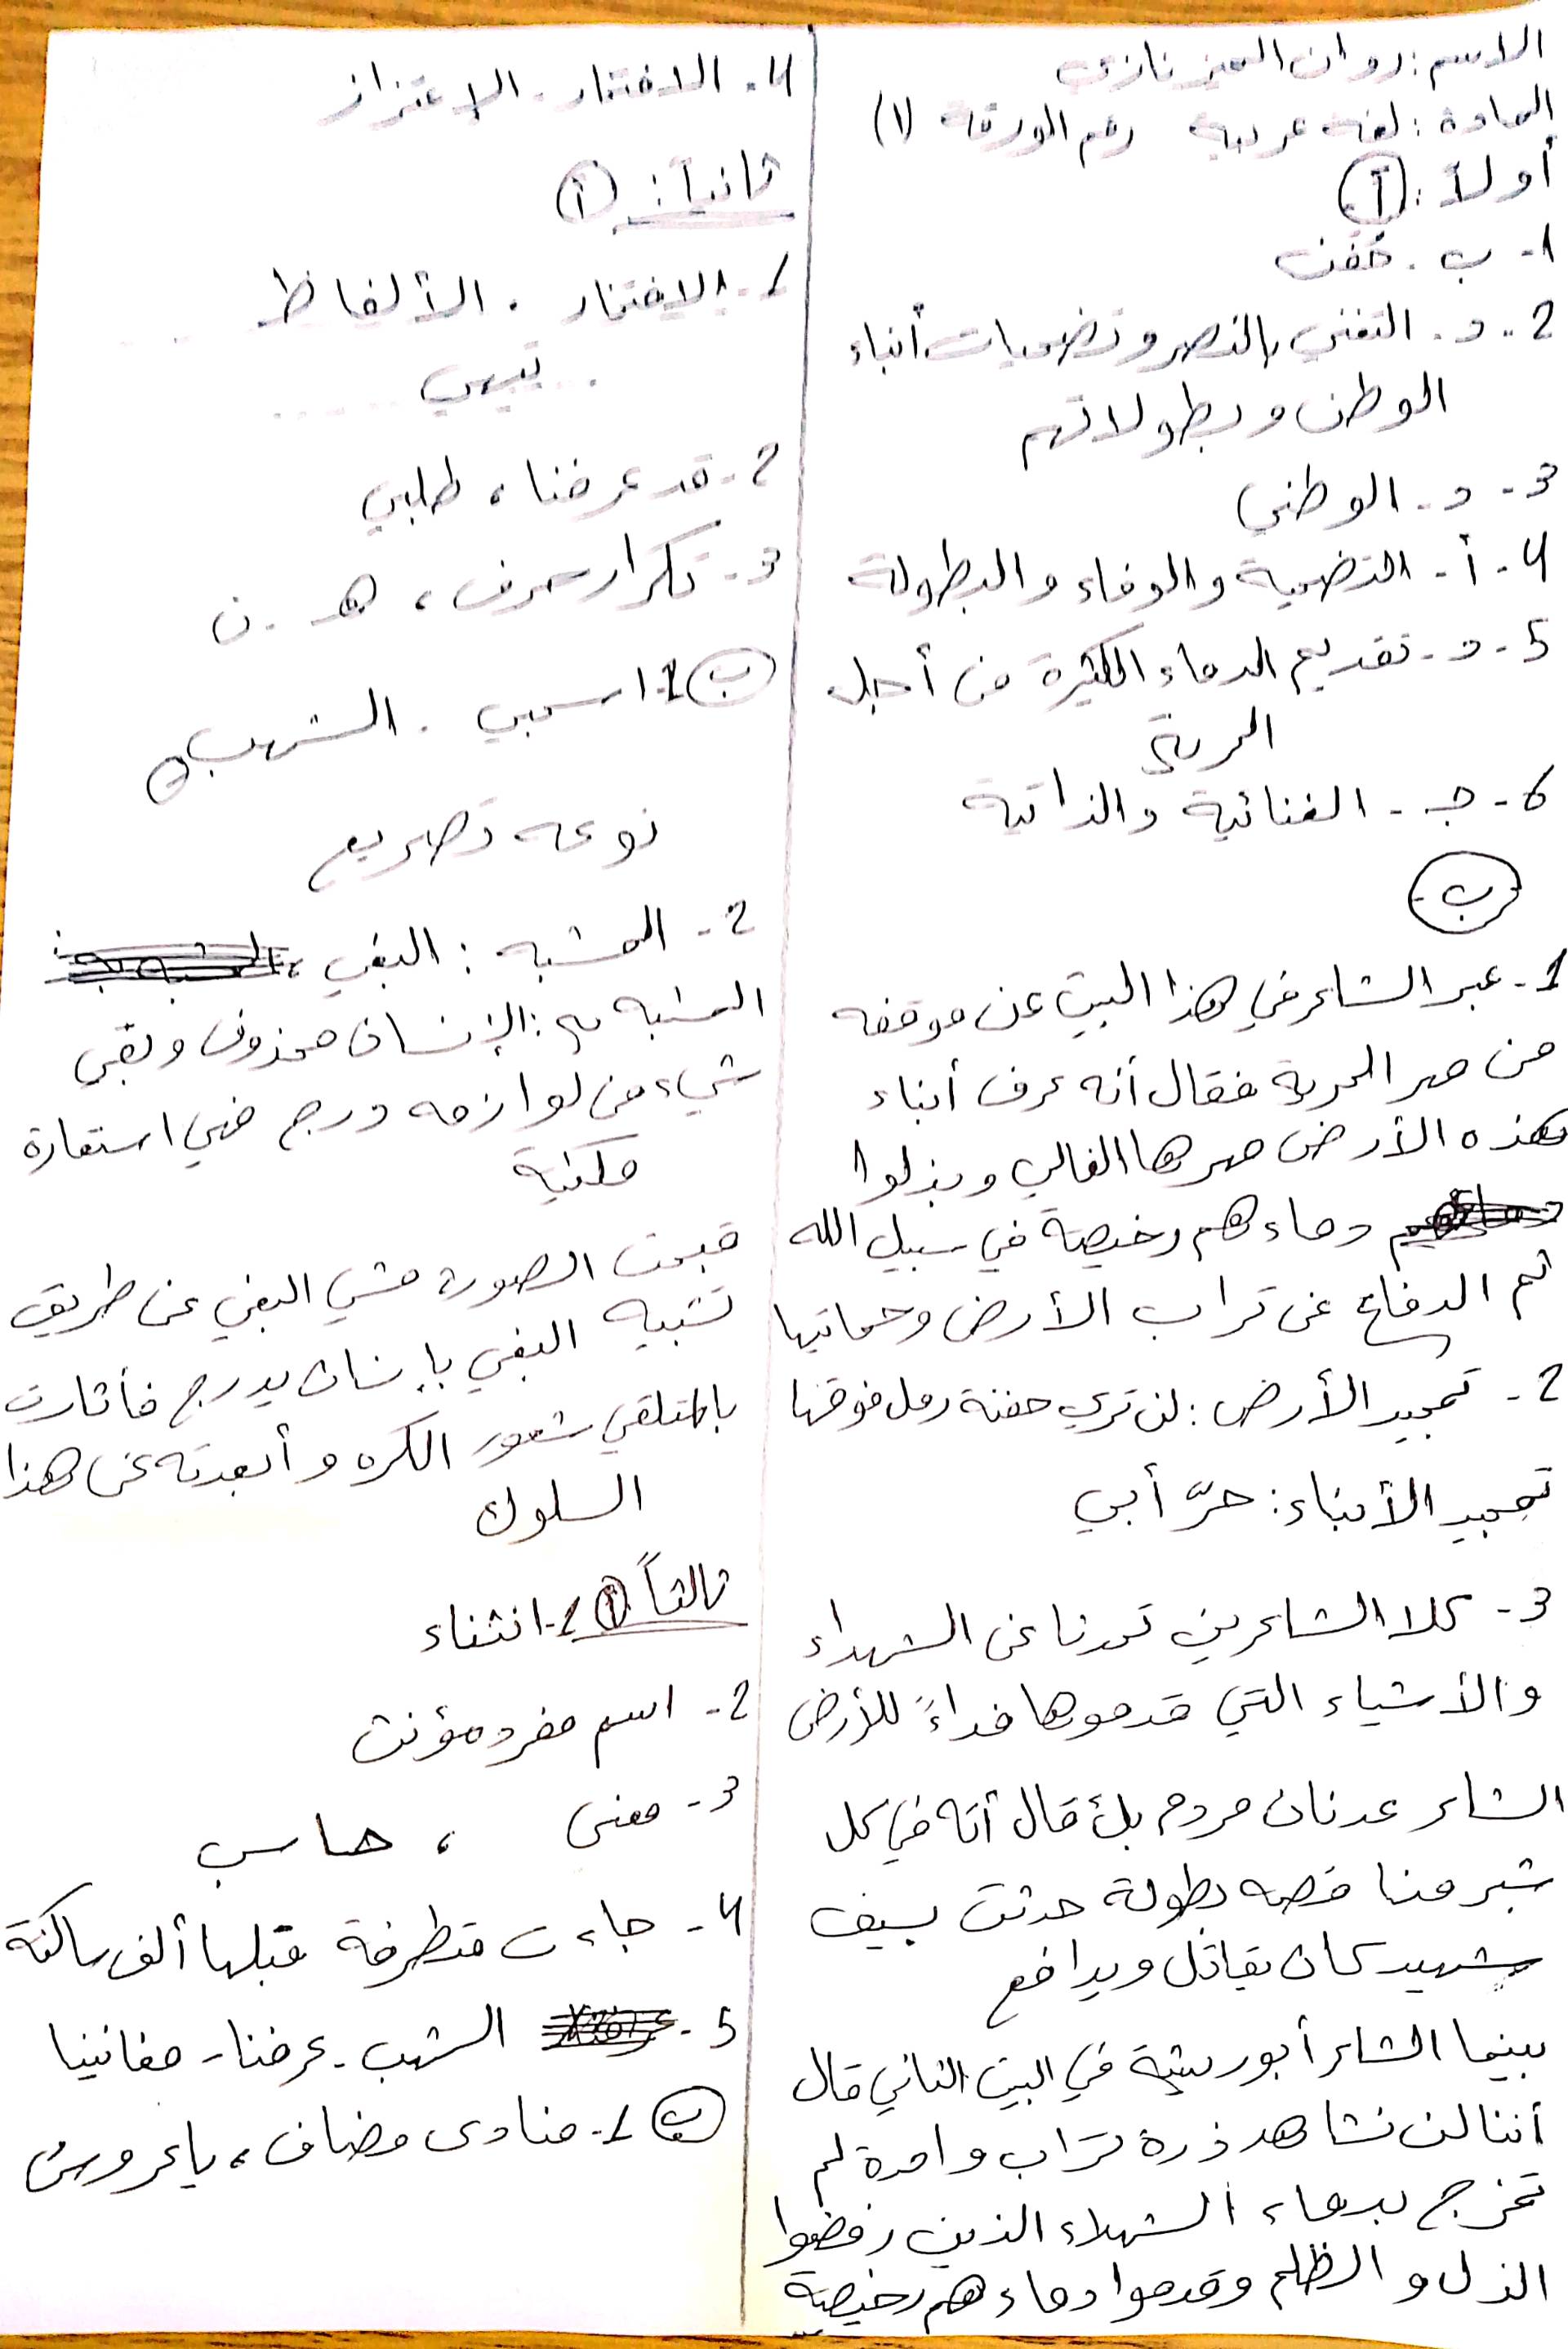 الاسم: روان المعز نازي
المادة: لغة عربية رقم الورقة (1)
أولاً: أ
1- ب. خفت
2- د. التغني بالنصر و تضحيات أبناء
الوطن وبطولاتهم
3- د. الوطني
4- أ- التضحية والوفاء والبطولة
5- د- تقديم الدماء الكثيرة من أجل
الحرية
6- جـ- الغنائية والذاتية
ب
1- عبر الشاعر في هذا البيت عن موقفه
من مهر الحرية فقال أنه عرف أبناء
هذه الأرض مهرها الغالي وبذلوا
دماءهم رخيصة في سبيل الله
ثم الدفاع عن تراب الأرض وحمايتها
2- تمجيد الأرض: لن تري حفنة رمل فوقها
تمجيد الأبناء: حرّ أبي
3- كلا الشاعرين تحدثا عن الشهداء
والأشياء التي قدموها فداءً للأرض
الشاعر عدنان مردم بك قال أنه في كل
شبر منا قصه بطولة حدثت بسيف
شهيد كان يقاتل ويدافع
بينما الشاعر أبو ريشة في البيت الثاني قال
أننا لن نشاهد ذرة تراب واحدة لم
تمزج بدماء الشهداء الذين رفضوا
الذل و الظلم وقدموا دماءهم رخيصة
4- الافتخار - الإعتزاز
ثانياً: أ
1- الافتخار . الألفاظ
تيهي
2- قد عرفنا، طلبي
3- تكرار حرف، هـ - ن
ب 1- اسحبي . الشهب
نوعه تصريع
2- المشبه: البغي،
المشبه به: الإنسان محذوف وبقي
شيء من لوازمه درج فهي استعارة
مكنية
قبحت الصورة مشي البغي عن طريق
تشبيه البغي بإنسان يدرج فأثارت
بالمتلقي شعور الكره وأبعدته عن هذا
السلوك
ثالثاً أ 1- انثناء
2- اسم مفرد مؤنث
3- معنى ، حاسب
4- جاءت متطرفة قبلها ألف ساكنة
5- الشهب - عرفنا - مغانينا
ب 1- منادى مضاف، يا عروس